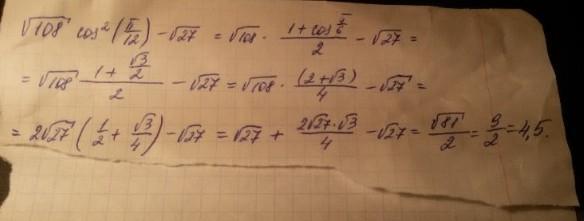 √108 cos²(π/12) − √27 = √108 · (1 + cos π/6)/2 − √27 =
= √108 (1 + √3/2)/2 − √27 = √108 · (2 + √3)/4 − √27 =
= 2√27 (1/2 + √3/4) − √27 = √27 + 2√27·√3/4 − √27 = √81/2 = 9/2 = 4,5.